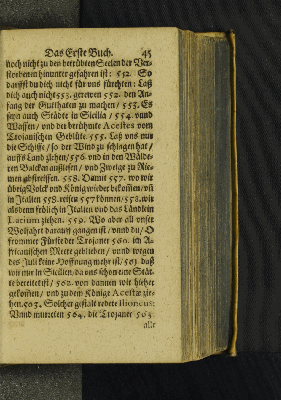 Das Erste Buch. 45
noch nicht zu den betrübten Seelen der Ver-
storbenen hinunter gefahren ist: 552. So
darffst du dich nicht für uns fürchten: Laß
dich auch nicht 553. gerewen 552. den An-
fang der Gutthaten zu machen / 553. Es
seyn auch Städte in Sicilia / 554. vnnd
Waffen / vnd der berühmte Acestes vom
Trojanischen Geblüte. 555. Laß vns nur
die Schiffe / so der Wind zu schlagen hat /
auffs Land ziehen / 556. vnd in den Wälde-
ren Balcken außlesen / vnd Zweige zu Rie-
men abstreiffen. 558. Damit 557. wo wir
übrig Volck vnd König wieder bekomen / vñ
in Italien 558. reisen 557 können / 558. wir
alsdenn frölich in Italien vnd das Ländlein
Latium ziehen. 559. Wo aber all vnser
Wolfahrt darauff gangen ist / vnnd du / O
frommer Fürst der Trojaner 560. im A-
fricanischen Meere geblieben / vnnd wegen
des Juli keine Hoffnung mehr ist / 561 daß
wir nur in Sicilien / da vns schon eine Stät-
te bereitet ist / 562. von dannen wir hieher
gekomen / vnd zu dem Könige Acestæ zie-
hen. 563. Solcher gestalt redete Ilioneus:
Vnnd murreten 564. die Trojaner 563
alle